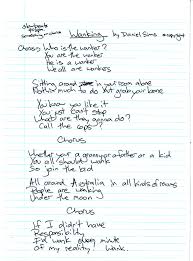 Wanking by Daniel Sims copyright
Chorus, Who is the wanker?
You are the wanker
He is a wanker
We all are wankers
Sitting around in your room alone
Nothin' much to do but grab your bone
You know you like it
You just can't stop
What are they gonna do?
Call the cops??
Chorus
Whether your a granny or a father or a kid
You all should wank
So join the bid
All around Australia in all kids dreams
People are wanking
Under the moon
Chorus
If I didn't have
Responsibility
I'd wank every minute
of my reality. Wank.